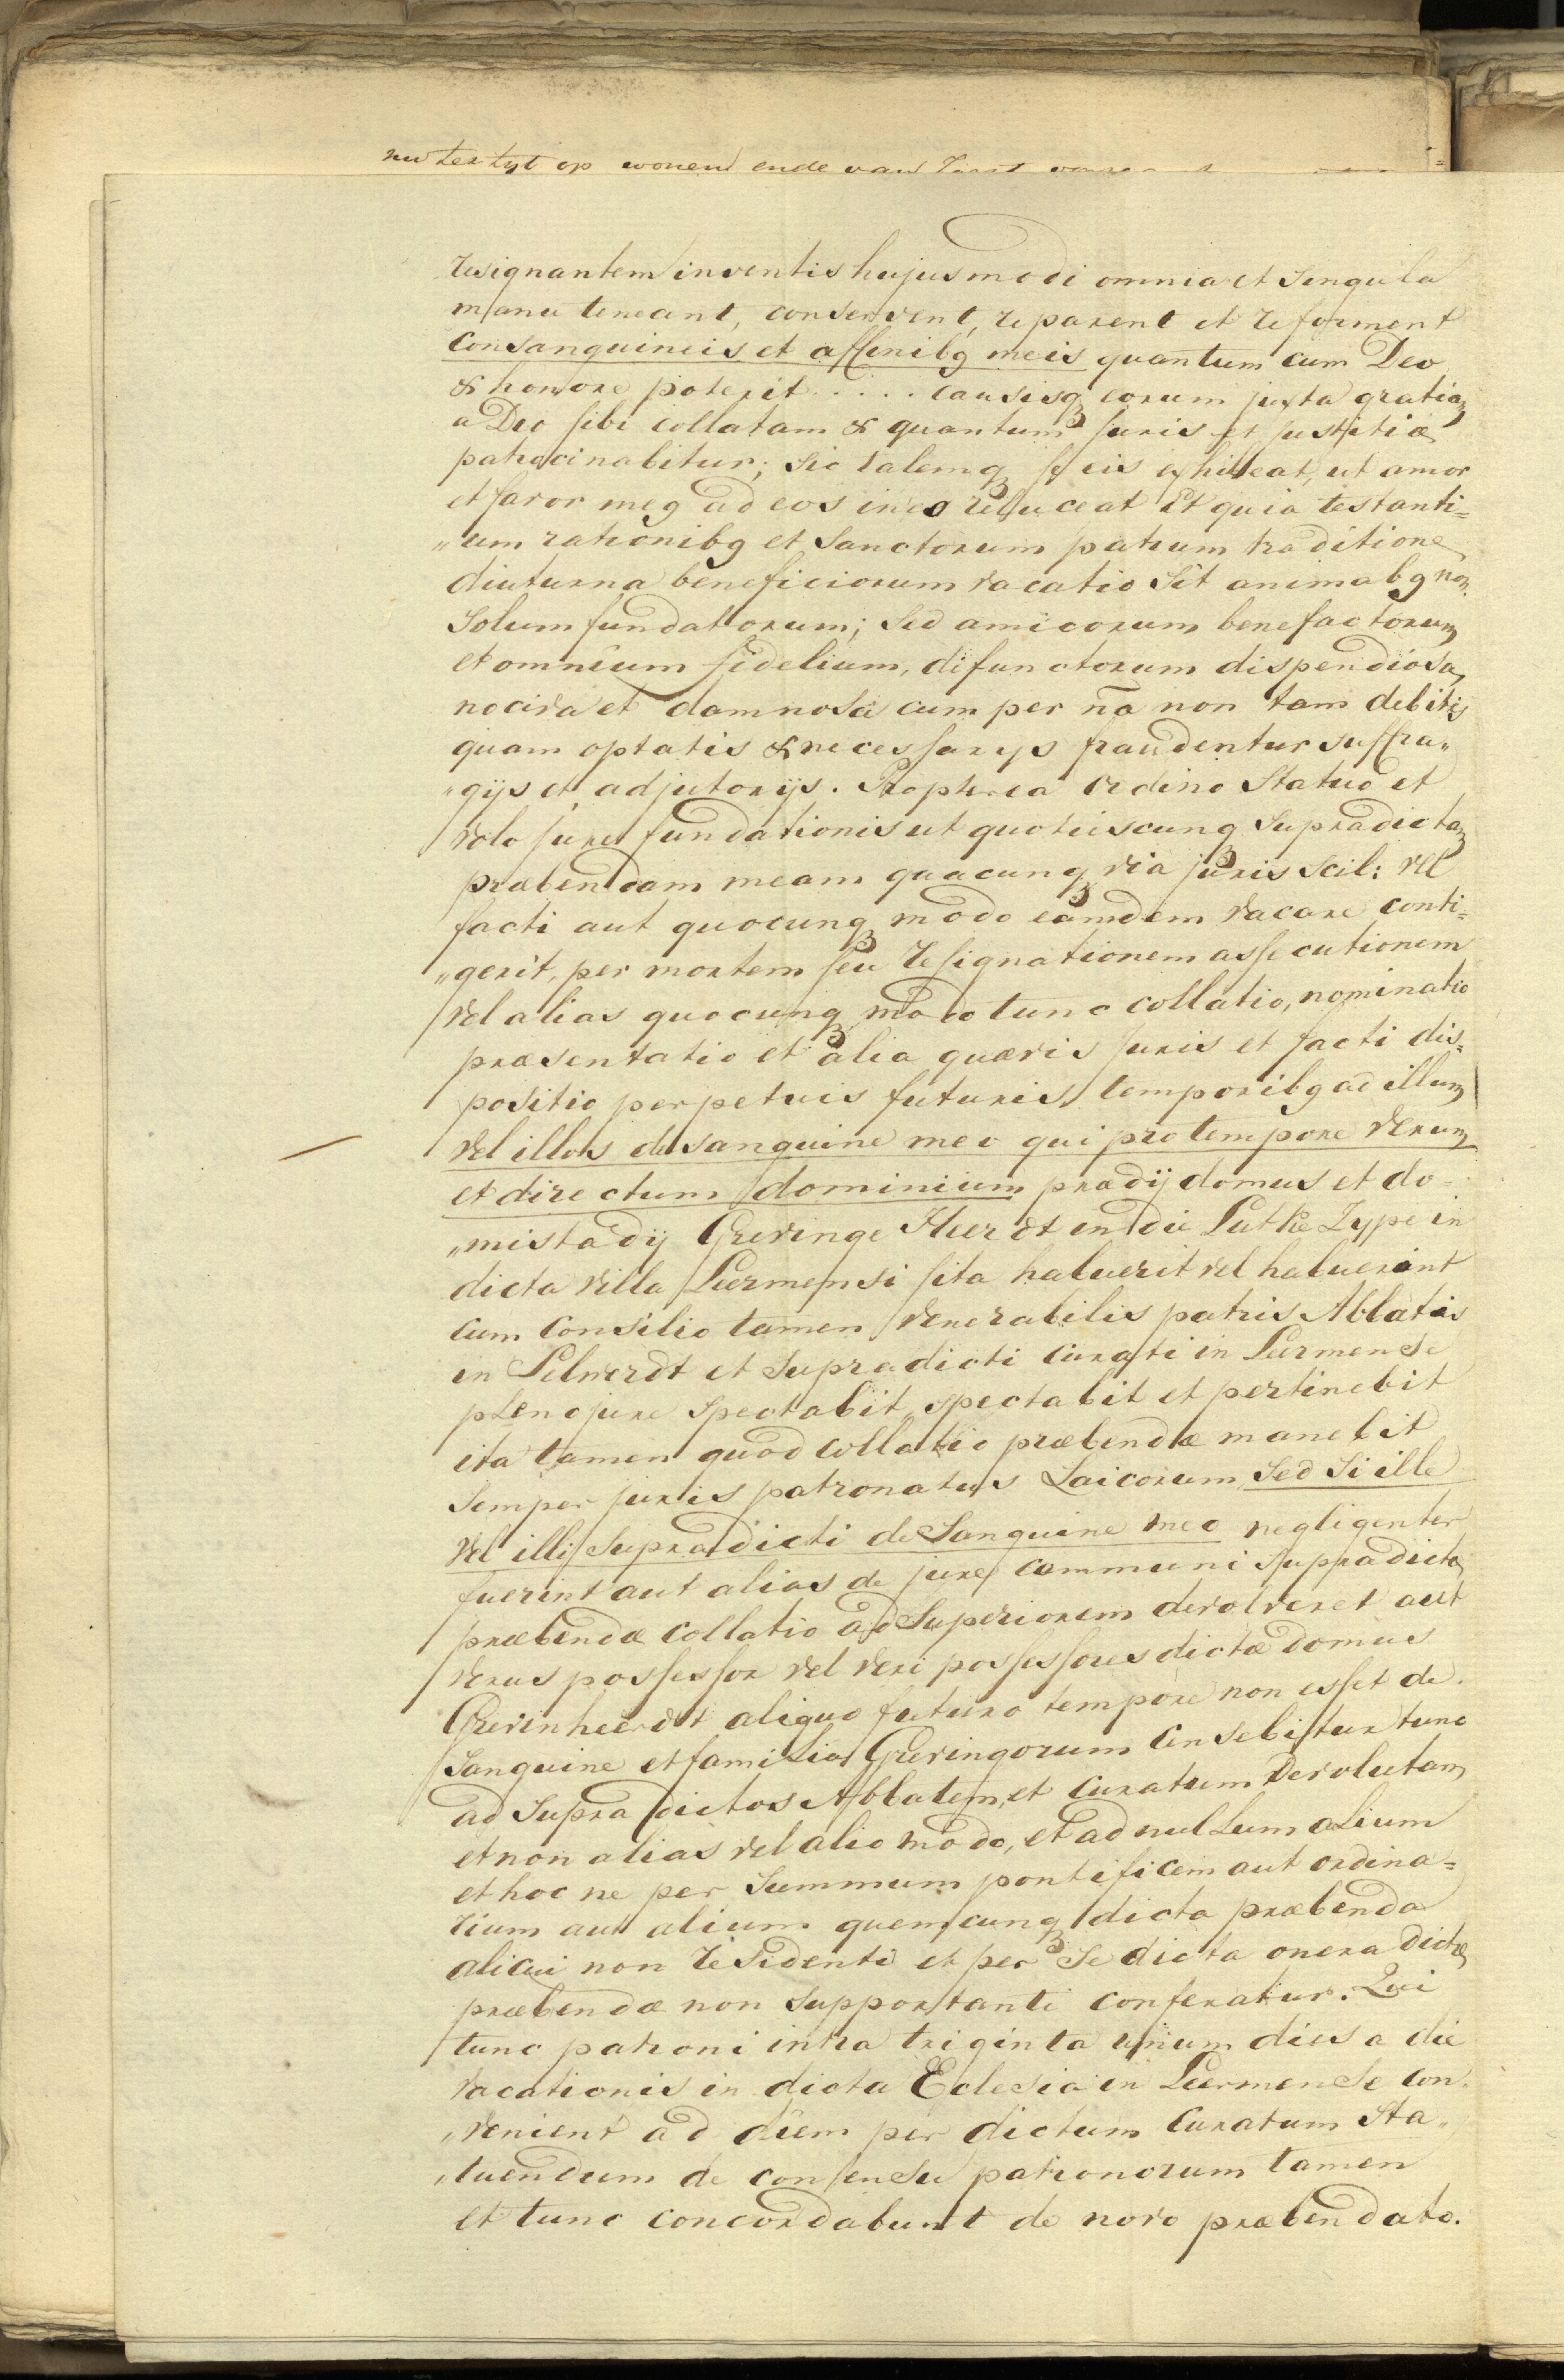 nu ter tyt op wonend ende van
resignantem inventis hujusmodi omnia et Singula
manu teneant, conservent, reparent et reforment
Consanguineis et affinibꝯ meis quantum cum Deo
& honore poterit ..... causisqꝫ eorum juxta gratiam
a Deo sibi collatam & quantum Juris et Justitiæ
patrocinabitur; Sic talemqꝫ se eis exhibeat, ut amor
et favor meꝯ ad eos in eo reluceat Et quia testanti=
„um rationibꝯ et Sanctorum patrum traditione
diuturna beneficiorum vacatio Sit animabꝯ non
Solum fundatorum; Sed amicorum benefactorum
et omnium fidelium, difunctorum dispendiosa,
nociva et damnosa cum per n̄a non tam debitis
quam optatis & necessarys fraudentur suffra„
„gijs et adjutorijs. Propterea Ordino Statuo et
Volo Jure fundationis ut quotiescunqꝫ Supradictam
præbendam meam quacunqꝫ via juris Scil: vel
facti aut quocunqꝫ modo eamdem Vacare conti=
„gerit, per mortem seu resignationem assecutionem
Vel alias quocunqꝫ modo tunc collatio, nominatio
præsentatio et alia quævis Juris et facti dis=
positio perpetuis futuris temporibꝯ ad illum
Vel illos de sanguine meo qui pro tempore Verum
et directum dominium prædij domus et do=
„mistadij Grevinge Heerdt en die Lutke Zype in
dicta Villa Leermensi sita habuerit vel habuerint
cum Consilio tamen Venerabilis patris Abbatis
in Selwerdt et Supradicti Curati in Leermense
pleno jure Spectabit, spectabit et pertinebit
ita tamen quod collatio præbendæ manebit
Semper juris patronatus Laicorum, Sed Si ille
Vel illi Supradicti de Sanguine meo negligenter
fuerint aut alias de jure communi Supradictæ
præbendæ collatio ad Superiorem devolveret aut
Verus possessor vel veri possessores dictæ domus
Grevinheerdt aliquo futuro tempore non esset de
Sanguine et familia Grevingorum Censebitur tunc
ad Supra dictos Abbatem, et Curatum Devolutam
et non alias vel alio modo, et ad nullum alium
et hoc ne per Summum pontificem aut ordina=
rium aut alium quemcunqꝫ dicta præbenda
alicui non residenti et per Se dicta onera dictæ
præbendæ non Supportanti conferatur. Qui
tunc patroni intra triginta unum dies a die
Vacationis in dicta Eclesia in Leermense con„
„venient ad diem per dictum Curatum Sta„
„tuendum de consensu patronorum tamen
et tunc concordabunt de novo præbendato.